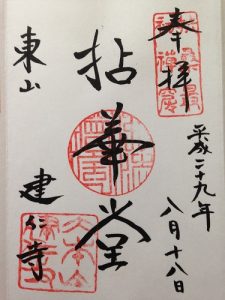 奉拝
平成二十九年
八月十八日
拈華堂
東山
建仁寺